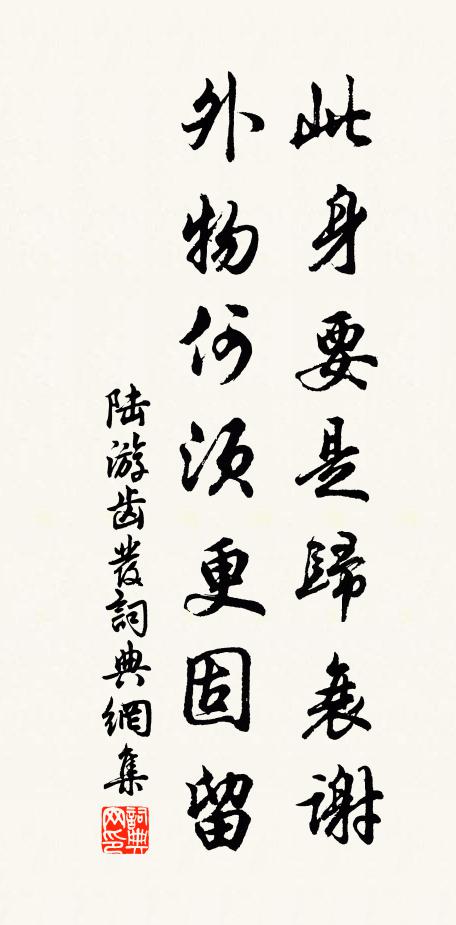 此身要是歸衰謝
外物何須更固留
陆游齿發詞典網集
詞典网印